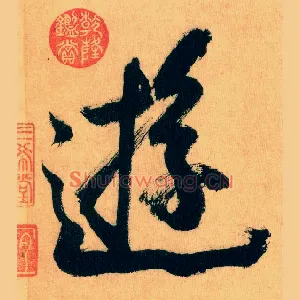 乾隆鑑賞
遊
Shufawang.cn